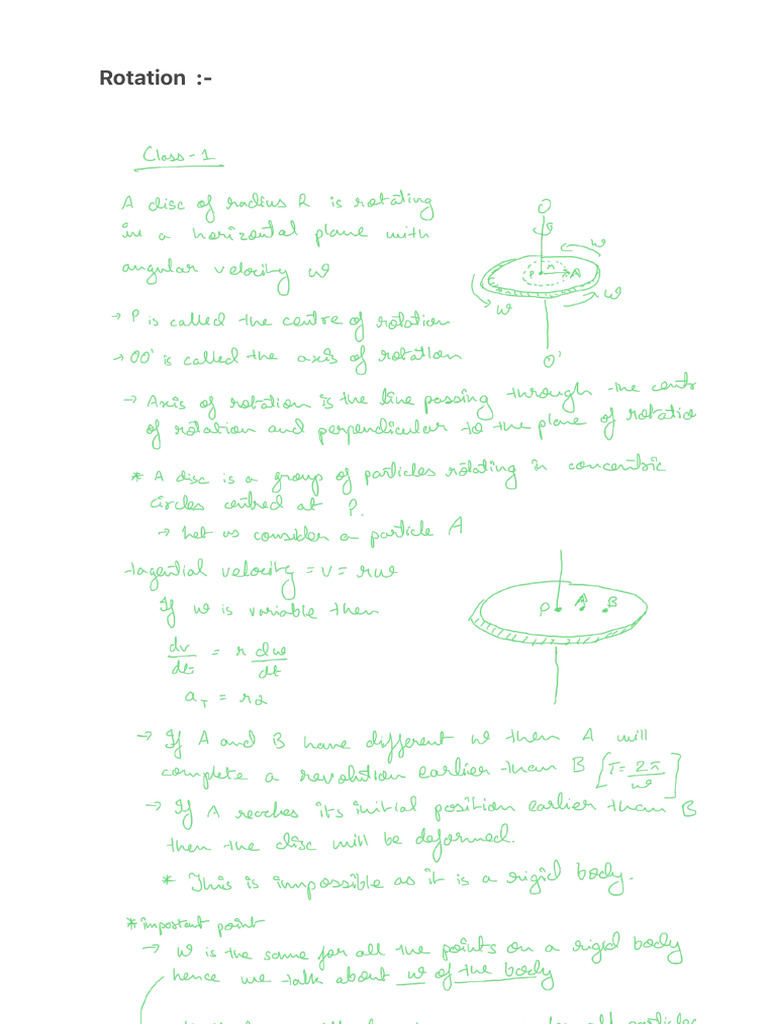 Rotation :-
Class - 1
A disc of radius R is rotating
in a horizontal plane with
angular velocity ω
O
ω
P r A
ω
ω
O'
→ P is called the centre of rotation
→ OO' is called the axis of rotation
→ Axis of rotation is the line passing through the centr
of rotation and perpendicular to the plane of rotatio
* A disc is a group of particles rotating in concentric
circles centred at P.
→ Let us consider a particle A
tagential velocity = v = rω
If ω is variable then
P A B
dv/dt = r dω/dt
a_T = rα
→ If A and B have different ω then A will
complete a revolution earlier than B [T = 2π/ω]
→ If A reaches its initial position earlier than B
then the disc will be deformed.
* This is impossible as it is a rigid body.
* important point
→ ω is the same for all the points on a rigid body
hence we talk about ω of the body
all particles